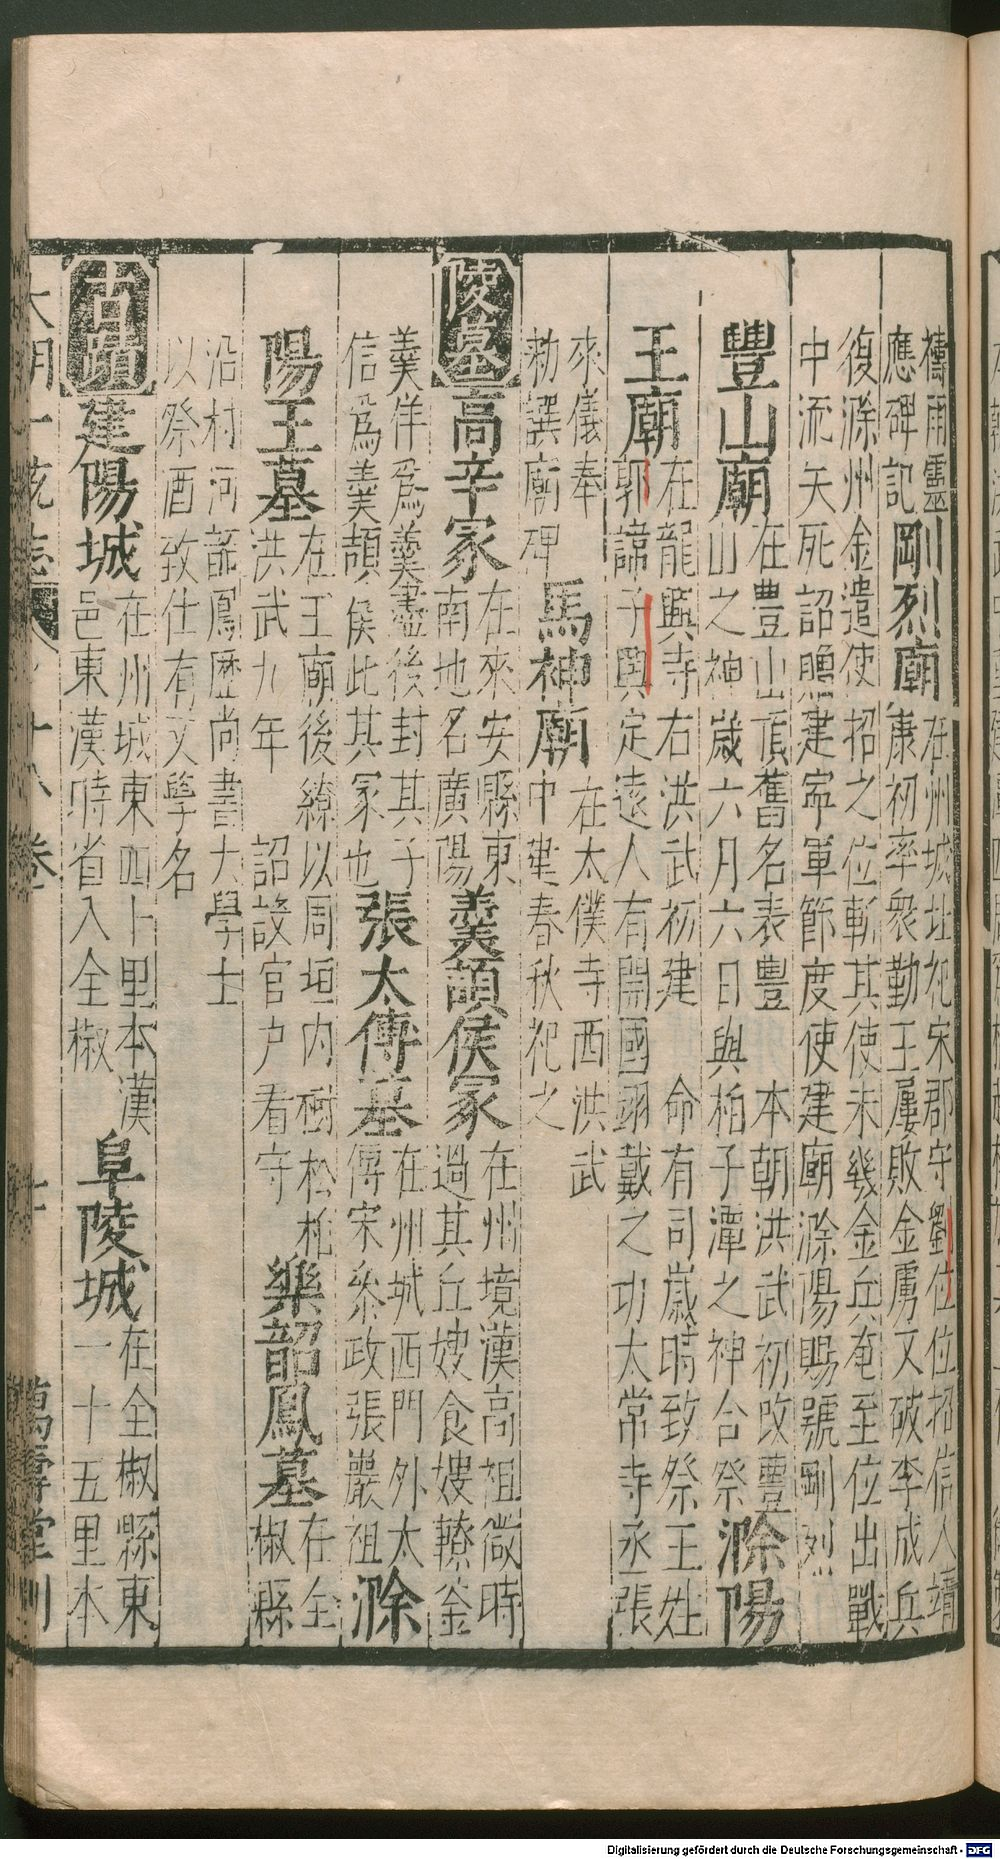 禱雨靈
應碑記
剛烈廟
在州城北祀宋郡守劉位位招信人靖
康初率衆勤王屢敗金虜又破李成兵
復滁州金遣使招之位斬其使未幾金兵奄至位出戰
中流矢死詔贈建寧軍節度使建廟滁陽賜號剛烈
豐山廟
在豐山頂舊名表豊 本朝洪武初改豐
山之神歲六月六日與柏子潭之神合祭
滁陽
王廟
在龍興寺右洪武初建 命有司歲時致祭王姓
郭諱子興定遠人有開國翊戴之功太常寺丞張
來儀奉
勑撰廟碑
馬神廟
在太僕寺西洪武
中建春秋祀之
陵墓
高辛冢
在來安縣東
南地名廣陽
羹頡侯冢
在州境漢高祖微時
過其丘嫂食嫂轑釜
羹佯爲羹盡後封其子
信爲羹頡侯此其冢也
張太傅墓
在州城西門外太
傅宋叅政張巖祖
滁
陽王墓
在王廟後繚以周垣内樹松柏
洪武九年 詔設官户看守
樂韶鳳墓
在全
椒縣
沿村河韶鳳歷尚書大學士
以祭酒致仕有文學名
古蹟
建陽城
在州城東四十里本漢
邑東漢時省入全椒
阜陵城
在全椒縣東
一十五里本
大明一统志 卷 十八卷 十 萬壽堂刊
Digitalisierung gefördert durch die Deutsche Forschungsgemeinschaft - DFG